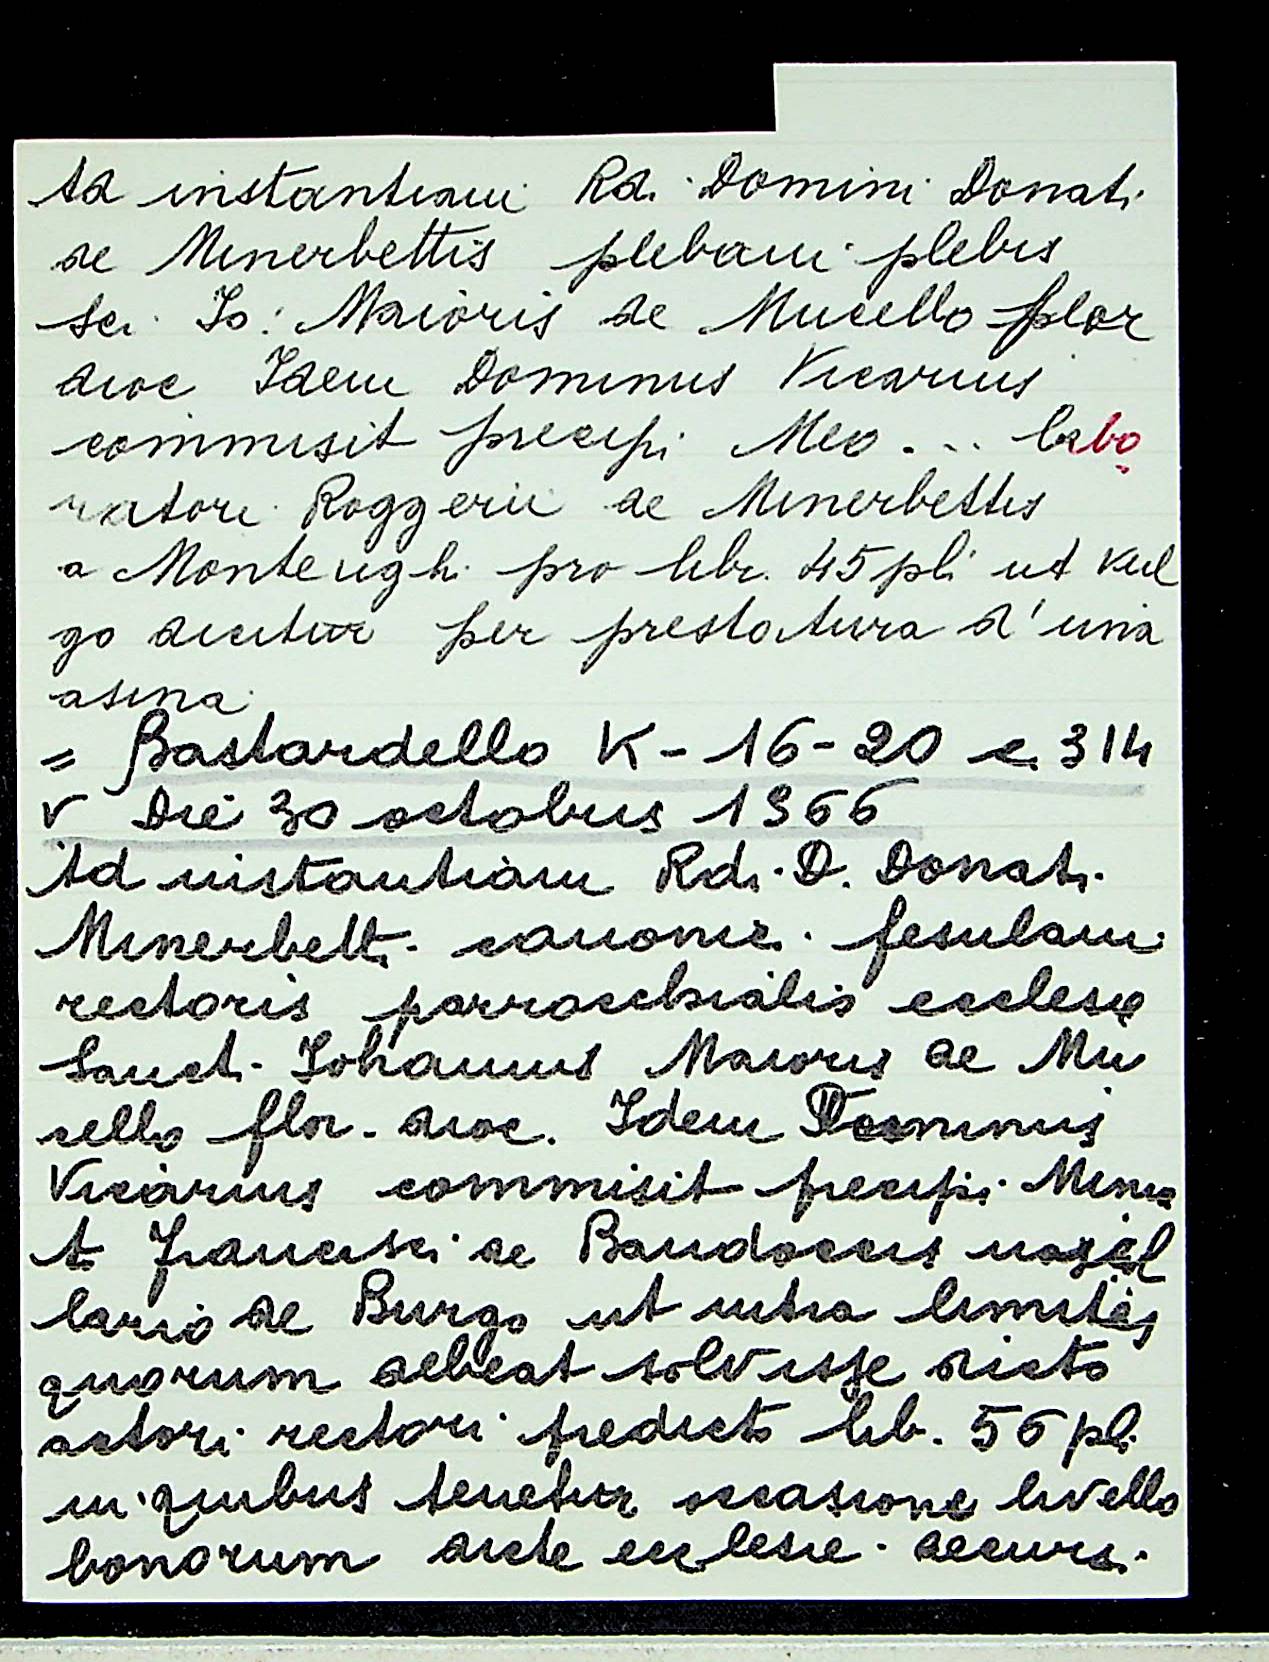 Ad instantiam Rdi Domini Donati
de Minerbettis plebani plebis
Sci Jo: Maioris de Mucello flor
dioc Idem Dominus Vicarius
commisit precipi Meo ... labo
ratori Roggerii de Minerbettis
a Monteughi pro libr. 45 pli ut vul
go dicitur per prestatura d'una
asina
= Bastardello K-16-20 c. 314
v Die 30 octobris 1566
Ad instantiam Rdi. D. Donati
Minerbetti canonici fesulani
rectoris parrocchialis ecclesie
Sancti Johannis Maioris de Mu
cello flor. dioc. Idem Dominus
Vicarius commisit precipi
t. Francisci de Bandoccis
lario de Burgo ut intra limites
quorum debeat solvisse dicto
actori rectori predicto lib. 56 pli
in quibus tenetur occasione livello
bonorum dicte ecclesie decurs.